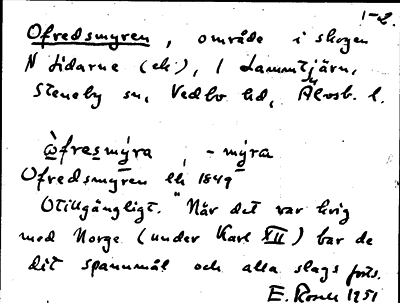 1-2.
Ofredsmyren, område i skogen
N Lidarne (ek), 1 Lammtjärn,
Steneby sn, Vedbo hd, Älvsb. l.
ọ̀fresmýra, -mýra
Ofredsmyren lk 1849
Otillgängligt. "När det var krig
med Norge (under Karl XII) bar de
dit spannmål och alla slags forts.
E. Rosell 1951